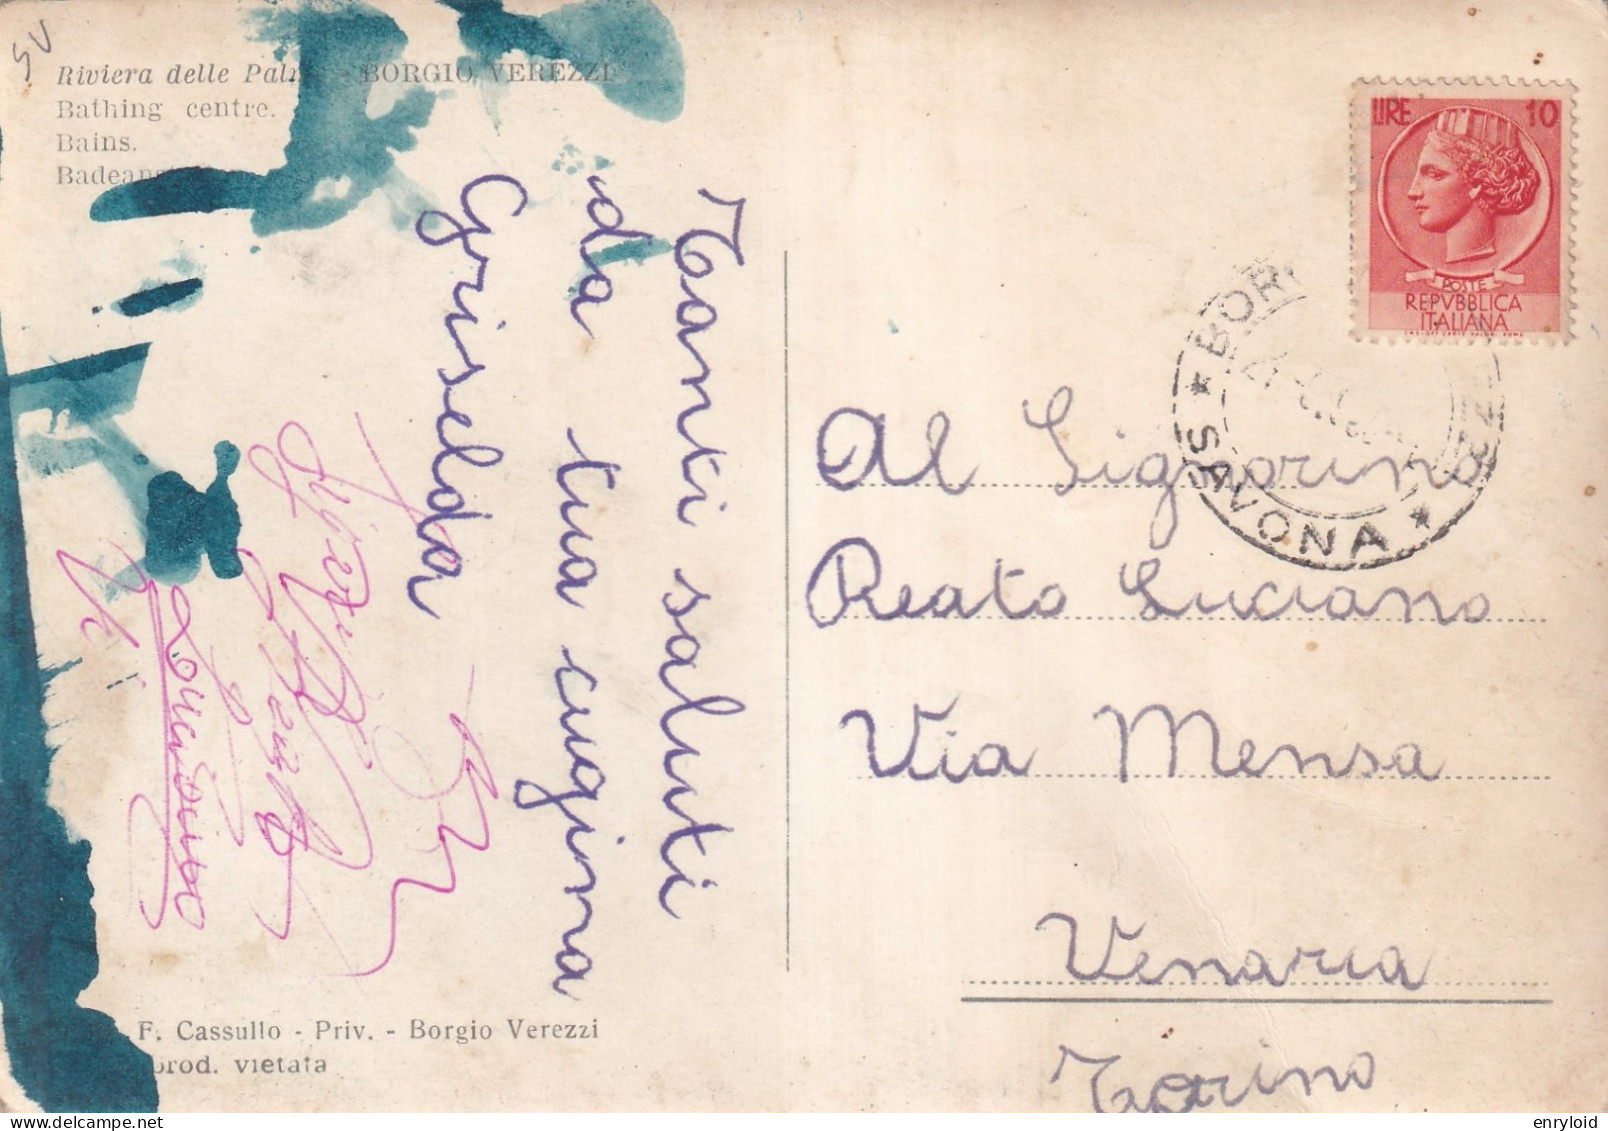 SV
Riviera delle Pal - BORGIO VEREZZI
Bathing centre.
Bains.
Badean
Tanti saluti
da tua cugina
Griselda
LIRE 10
POSTE
REPVBBLICA
ITALIANA
* BOR ZZI * SAVONA
Al Signorino
Reato Luciano
Via Mensa
Venaria
Torino
F. Cassullo - Priv. - Borgio Verezzi
prod. vietata
enryloid